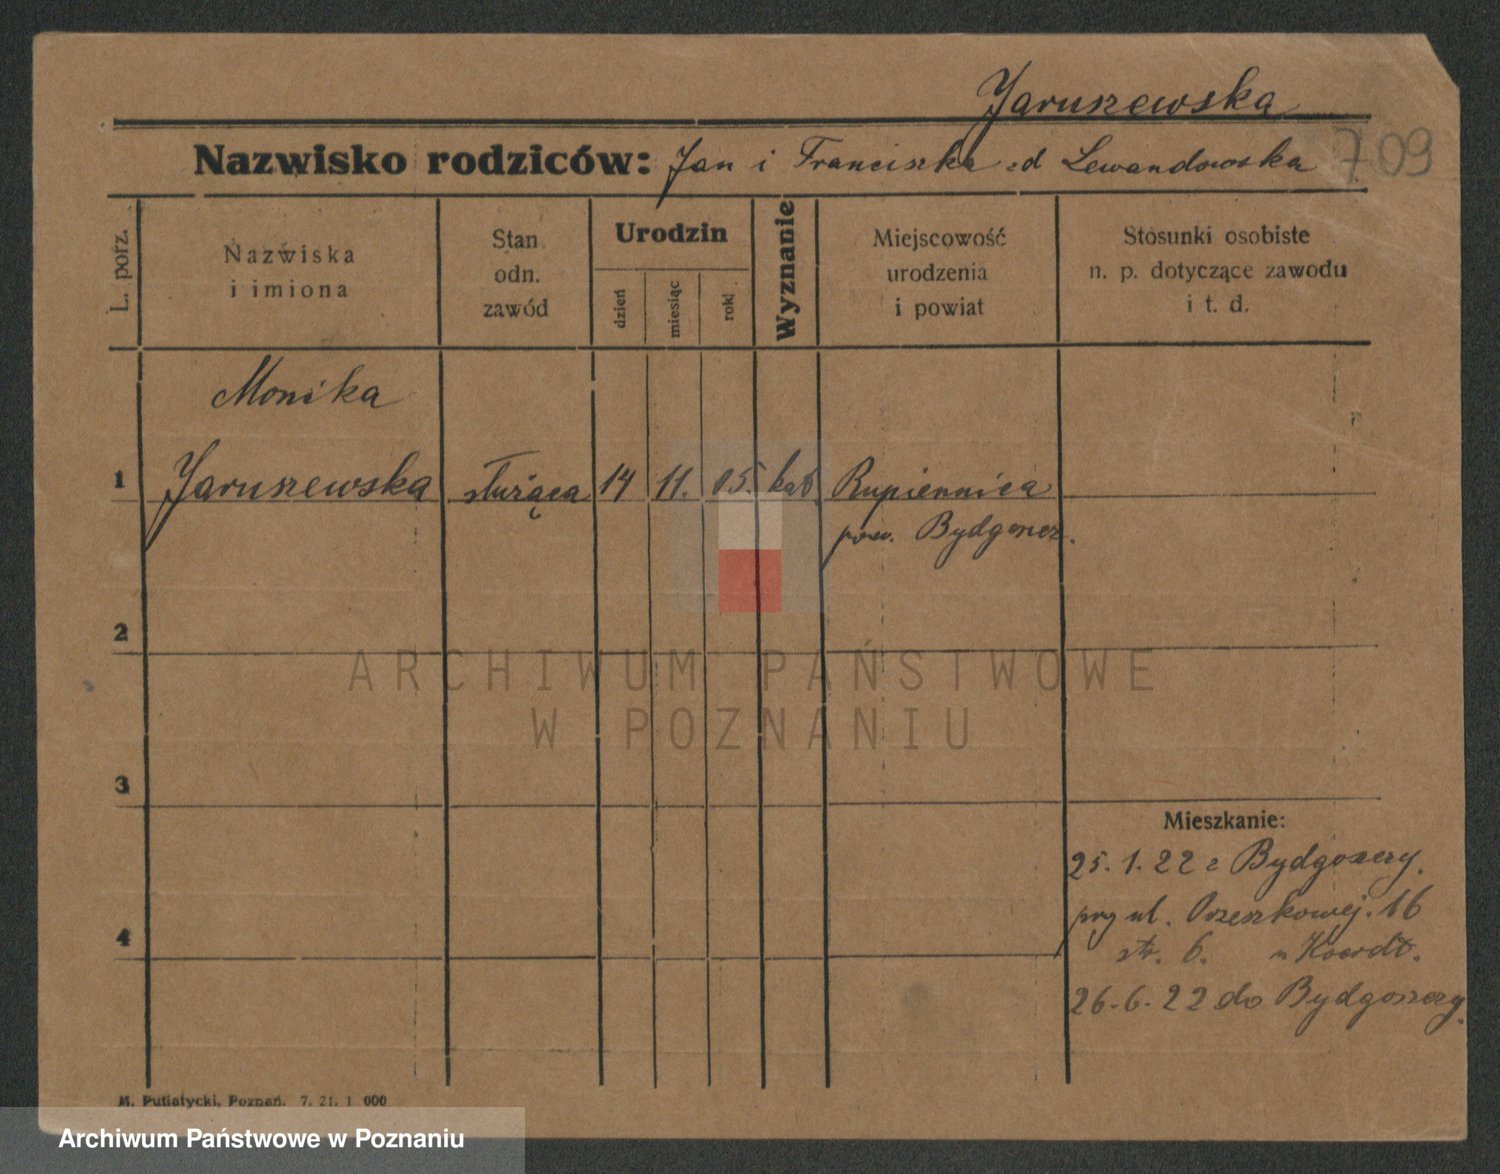 Jaruszewska
Nazwisko rodziców: Jan i Franciszka zd Lewandowska
709
L. porz.
Nazwiska
i imiona
Stan
odn.
zawód
Urodzin
dzień
miesiąc
rok
Wyznanie
Miejscowość
urodzenia
i powiat
Stosunki osobiste
n. p. dotyczące zawodu
i t. d.
Monika
1 Jaruszewska służąca 14 11. 05. kat. Rupiennica
pow. Bydgoszcz.
2
3
4
Mieszkanie:
25.1.22 z Bydgoszczy.
przy ul. Orzeszkowej. 16
str. 6. u
26.6.22 do Bydgoszczy.
M. Putiatycki, Poznań. 7. 21. 1 000
ARCHIWUM PAŃSTWOWE
W POZNANIU
Archiwum Państwowe w Poznaniu